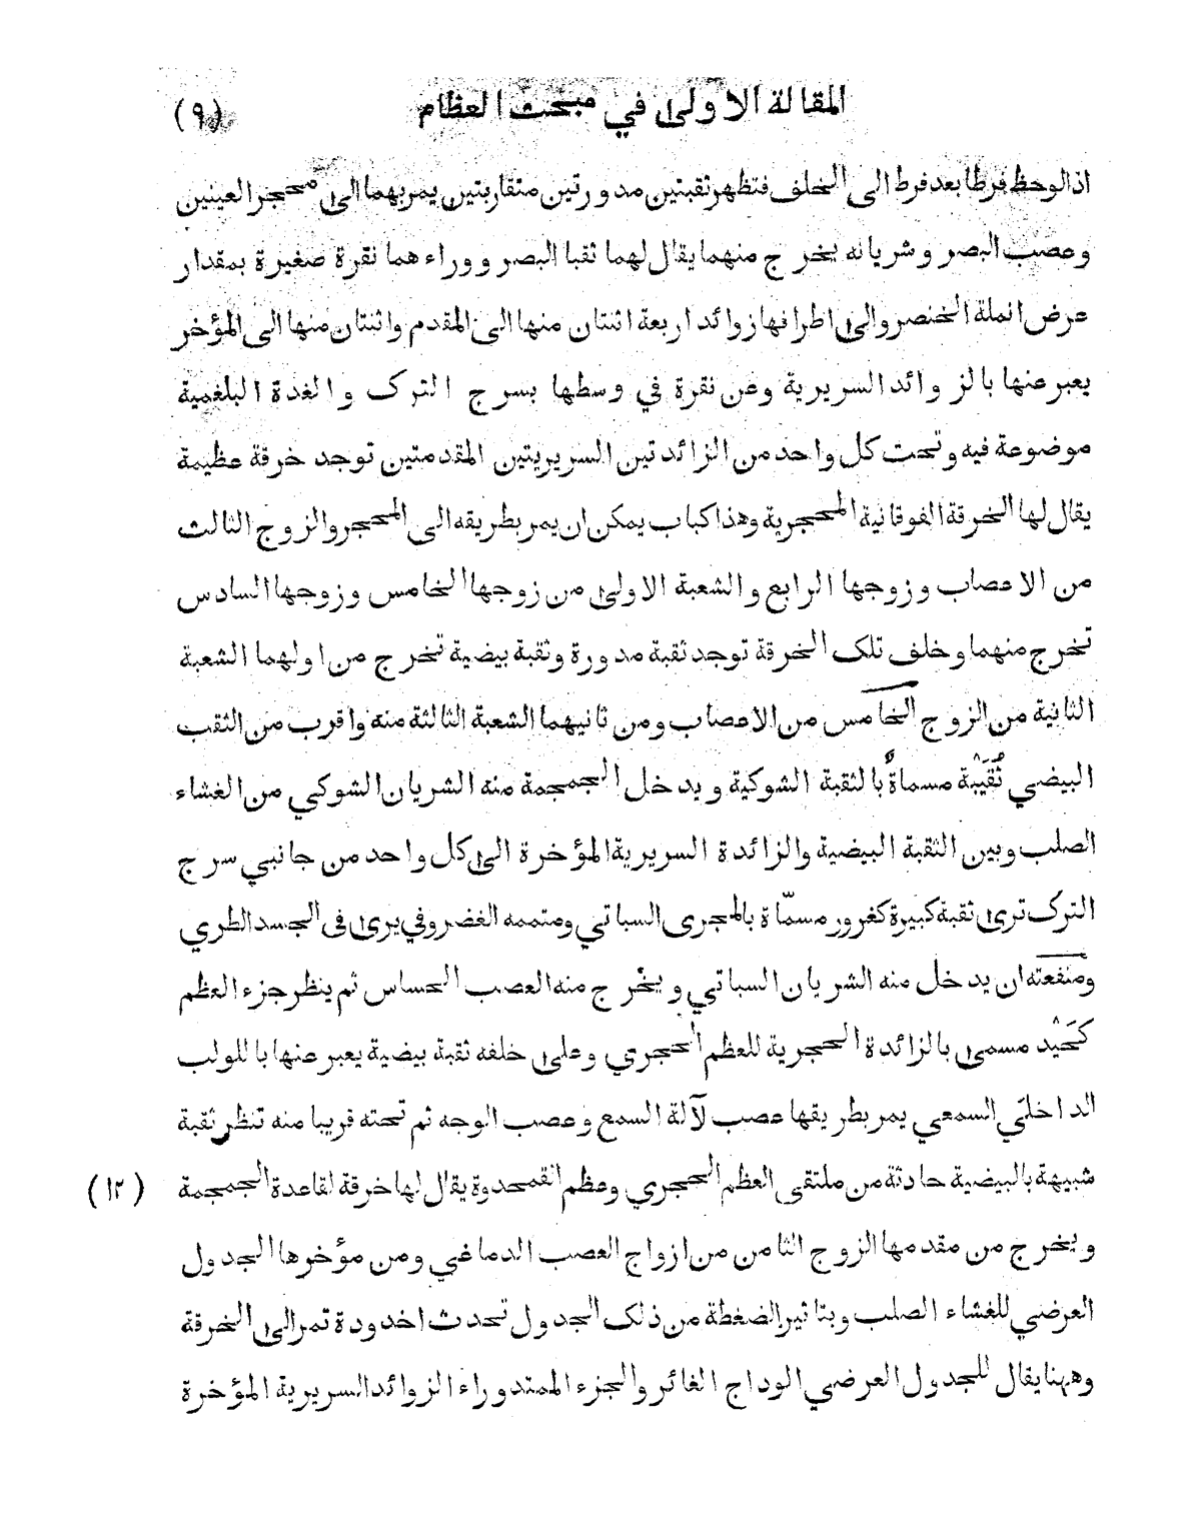 المقالة الاولى في مبحث العظام (٩)
اذا لوحظ فرطا بعد فرط الى الخلف فتظهر ثقبتين مدورتين متقاربتين يمر بهما الى محجر العينين
وعصب البصر وشريانه يخرج منهما يقال لهما ثقبا البصر ووراءهما نقرة صغيرة بمقدار
عرض انملة الخنصر والى اطرافها زوائد اربعة اثنتان منها الى المقدم واثنتان منها الى المؤخر
يعبر عنها بالزوائد السريرية وعن نقرة في وسطها بسرج الترك والغدة البلغمية
موضوعة فيه وتحت كل واحد من الزائدتين السريريتين المقدمتين توجد خرقة عظيمة
يقال لها الخرقة الفوقانية المحجرية وهذا كباب يمكن ان يمر بطريقه الى المحجر والزوج الثالث
من الاعصاب وزوجها الرابع والشعبة الاولى من زوجها الخامس وزوجها السادس
تخرج منهما وخلف تلك الخرقة توجد ثقبة مدورة وثقبة بيضية تخرج من اولهما الشعبة
الثانية من الزوج الخامس من الاعصاب ومن ثانيهما الشعبة الثالثة منه واقرب من الثقب
البيضي ثُقَيْبَة مسماةٌ بالثقبة الشوكية ويدخل الجمجمة منه الشريان الشوكي من الغشاء
الصلب وبين الثقبة البيضية والزائدة السريرية المؤخرة الى كل واحد من جانبي سرج
الترك ترى ثقبة كبيرة كغرور مسمّاة بالمجرى السباتي ومتممه الغضروفي يرى فى الجسد الطري
ومنفعته ان يدخل منه الشريان السباتي ويخرج منه العصب الحساس ثم ينظر جزء العظم
كَحَيْد مسمى بالزائدة الحجرية للعظم الحجري وعلى خلفه ثقبة بيضية يعبر عنها باللولب
الداخلي السمعي يمر بطريقها عصب لآلة السمع وعصب الوجه ثم تحته قريبا منه تنظر ثقبة
شبيهة بالبيضية حادثة من ملتقى العظم الحجري وعظم القمحدوة يقال لها خرقة لقاعدة الجمجمة (١٢)
ويخرج من مقدمها الزوج الثامن من ازواج العصب الدماغي ومن مؤخرها الجدول
العرضي للغشاء الصلب وبتاثير الضغطة من ذلك الجدول تحدث اخدودة تمر الى الخرقة
وههنا يقال للجدول العرضي الوداج الغائر والجزء الممتد وراء الزوائد السريرية المؤخرة